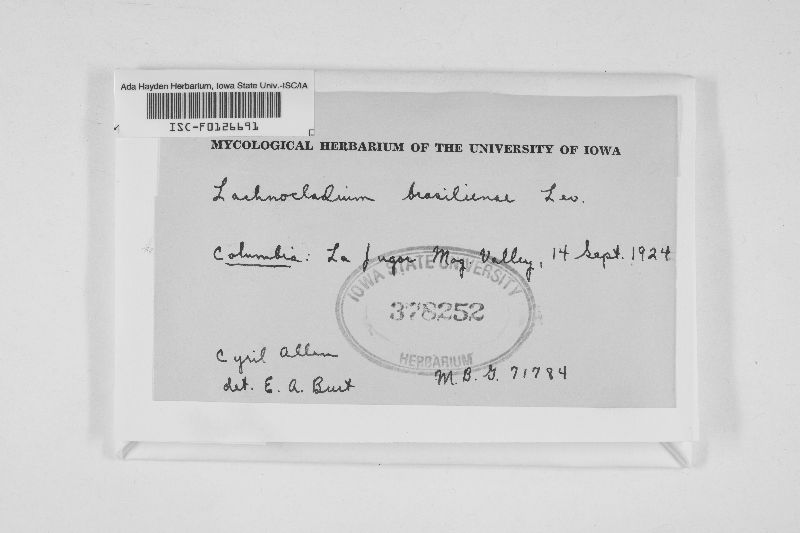 Ada Hayden Herbarium, Iowa State Univ.-ISC/IA
ISC-F0126691
MYCOLOGICAL HERBARIUM OF THE UNIVERSITY OF IOWA
Lachnocladium brasiliense Lev.
Columbia: La Jugor Mag. Valley, 14 Sept. 1924
IOWA STATE UNIVERSITY
378252
HERBARIUM
Cyril Allen
det. E. A. Burt M. B. G. 71784